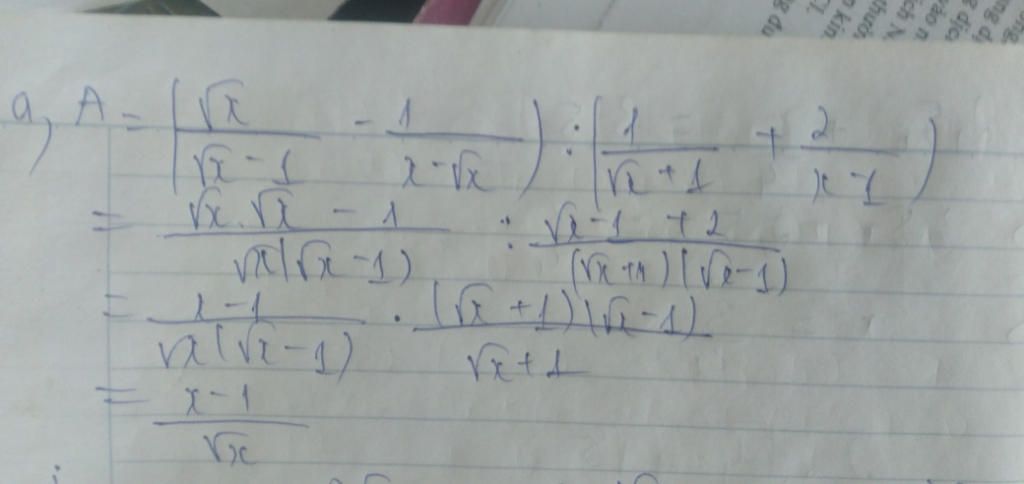 a, A = (√x / (√x - 1) - 1 / (x - √x)) : (1 / (√x + 1) + 2 / (x - 1))
= (√x.√x - 1) / (√x(√x - 1)) : (√x - 1 + 2) / ((√x + 1)(√x - 1))
= (x - 1) / (√x(√x - 1)) . ((√x + 1)(√x - 1)) / (√x + 1)
= (x - 1) / √x